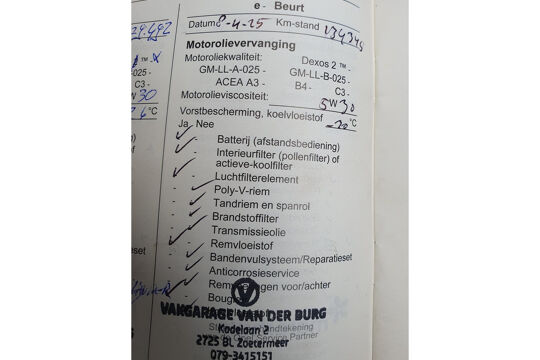 e - Beurt
29.492
Datum 8-4-25 Km-stand 134345
Motorolievervanging
Motoroliekwaliteit: Dexos 2 ™ -
GM-LL-A-025 - GM-LL-B-025 -
ACEA A3 - B4 - C3 -
Motorolieviscositeit: 5W30
Vorstbescherming, koelvloeistof °C
Ja Nee
™ -
C3 -
W 30
°C
- Batterij (afstandsbediening)
- Interieurfilter (pollenfilter) of
actieve-koolfilter
- Luchtfilterelement
- Poly-V-riem
- Tandriem en spanrol
- Brandstoffilter
- Transmissieolie
- Remvloeistof
- Bandenvulsysteem/Reparatieset
- Anticorrosieservice
- voor/achter
set
VAKGARAGE VAN DER BURG
Kadelaan 2
2725 BL Zoetermeer
079-3415151
Opel Service Partner